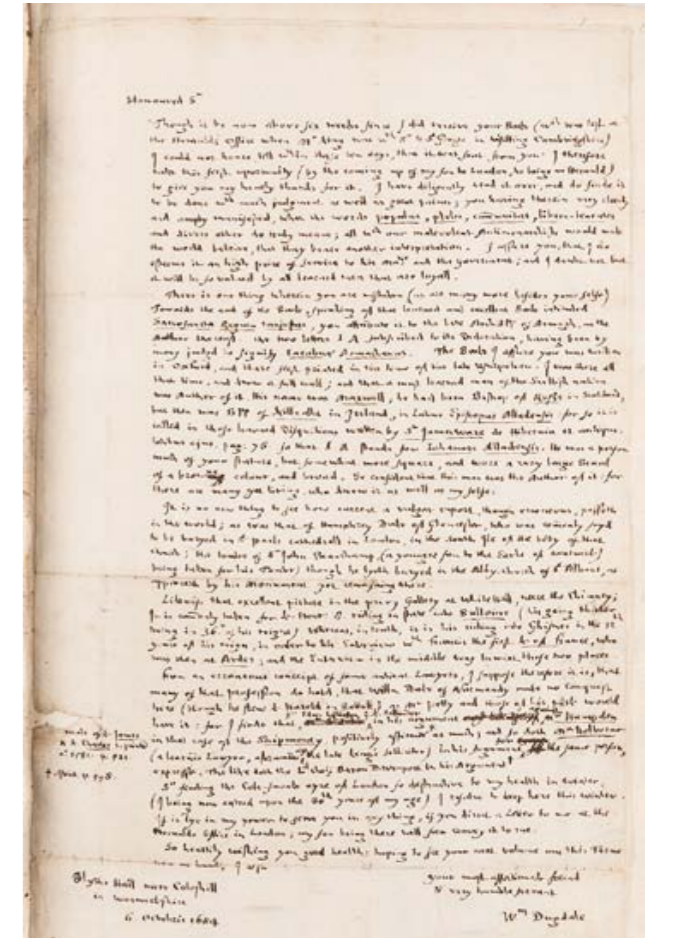 Honoured Sr
Though it be now above six weeks since I did receive your Book (wch was left at
the Heraulds office when Mr King was wth in visiting Cambridgshire)
I could not hence tell within these ten days, that it from you: I therefore
take this first opportunity (by the coming up of my son to London, he being an Herauld)
to give you my hearty thanks for it. I have diligently read it over, and do finde it
to be done wth much judgment as well as great paines; you having therein very clearly
and amply manifested, what the words populus, plebs, communitas, libere-tenentes
and divers other do truly meane; all wch our malevolent Antimonarchists would make
the world believe, that they beare another interpretation. I assure you, that I do
esteeme it an high piece of service to his Maty and the government; and I doubt not but
it will be so valued by all learned men that are loyall.
There is one thing wherein you are mistaken (as are many more besides your selfe)
Towards the end of the Book, speaking of that learned and excellent Book intituled
Sacrosancta Regum majestas, you attribute it to the late of Armagh, as the
Author thereof. the two letters J A subscribed to the Dedication, having been by
many judged to signify Jacobus Armachanus. The Book I assure you was written
in Oxford, and there first printed in the time of the late Usurpation. I was there all
that time, and know it full well; and that a most learned man of the Scottish nation
was Author of it. his name was Maxwell, he had been Bishop of Rosse in Scotland,
but then was BPP of Killalla in Ireland, in Latine Episcopus Alladensis for so it is
called in those learned Disquisitions written by Sr James Ware de Hibernia et antiqui-
tatibus ejus. pag. 76 so that J A stands for Johannes Alladensis. He was a person
much of your stature, but somewhat more square, and wore a very large Beard
of a brown colour, and broad. So confident I am this man was the Author of it: for
there are many yet living, who know it as well as my selfe.
It is no new thing to see how current a vulgar report, though erroneous, passeth
in the world; as was that of Humphrey Duke of Gloucester, who was comonly sayd
to be buryed in St paules cathedrall in London, in the south Isle of the body of that
church; the tombe of Sr John Beauchamp (a younger son to the Earle of Warwick)
being taken for his Tombe) though he lyeth buryed in the Abby-church of St Albans, as
appeareth by his Monument yet remayning there.
Likewise that excellent picture in the privy Gallery at Whitehall, neere the Chimney;
It is comonly taken for K. Henr. 8. riding in state into Bulloine (his going thither
being in 36th of his reigne) Whereas, in truth, it is his riding into Ghisnes in the 12th
yeare of his reign, in order to his Interview wth Francis the first K. of France, who
was then at Ardes; and the Interview in the middle way twixt those two places.
From an erroneous conceipt of some antient Lawyers, I suppose therefore it is, that
many of that profession do hold, that Willm Duke of Normandy made no Conquest
here (though he slew K Harold in Battel,) as Mr Petty and those of his party would
have it: for I finde that, in his argument
in that case of the Shipmony, positively affirmeth as much; and so doth Mr Holborne
(a learned Lawyer, afterwards the late kings sollicitor) in his Argument, the same person,
expresse. The like doth the Ld chief Baron Davenport in his Argument†
Sr finding the Cole-smoake ayre of London so destructive to my health in winter,
(I being now entred upon the 80th yeare of my age) I resolve to keep here this winter.
If it lye in my power to serve you in any thing, if you direct a Letter to me at the
Heraulds office in London; my son being there will soon convey it to me.
So heartily wishing you good health; hoping to see your next volume ere this Terme
I rest
your most affectionate friend
& very humble servant
Wm Dugdale
Blythe Hall neere Coleshill
in Warwickshire
6 October 1684